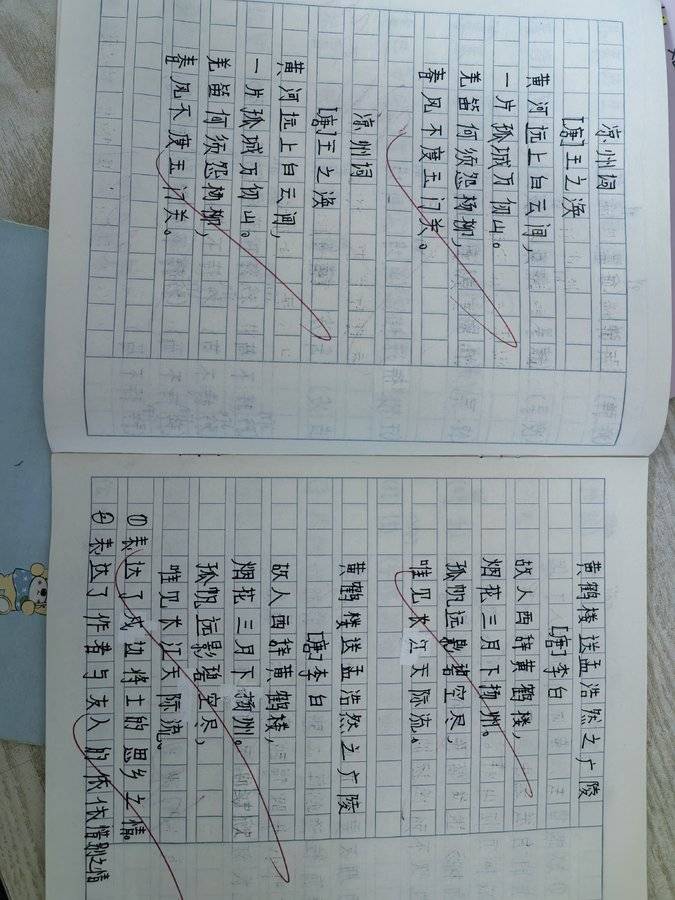 凉州词
[唐]王之涣
黄河远上白云间，
一片孤城万仞山。
羌笛何须怨杨柳，
春风不度玉门关。
凉州词
[唐]王之涣
黄河远上白云间，
一片孤城万仞山。
羌笛何须怨杨柳，
春风不度玉门关。
黄鹤楼送孟浩然之广陵
[唐]李白
故人西辞黄鹤楼，
烟花三月下扬州。
孤帆远影碧空尽，
唯见长江天际流。
黄鹤楼送孟浩然之广陵
[唐]李白
故人西辞黄鹤楼，
烟花三月下扬州。
孤帆远影碧空尽，
唯见长江天际流。
①表达了戍边将士的思乡之情。
②表达了作者与友人的依依惜别之情